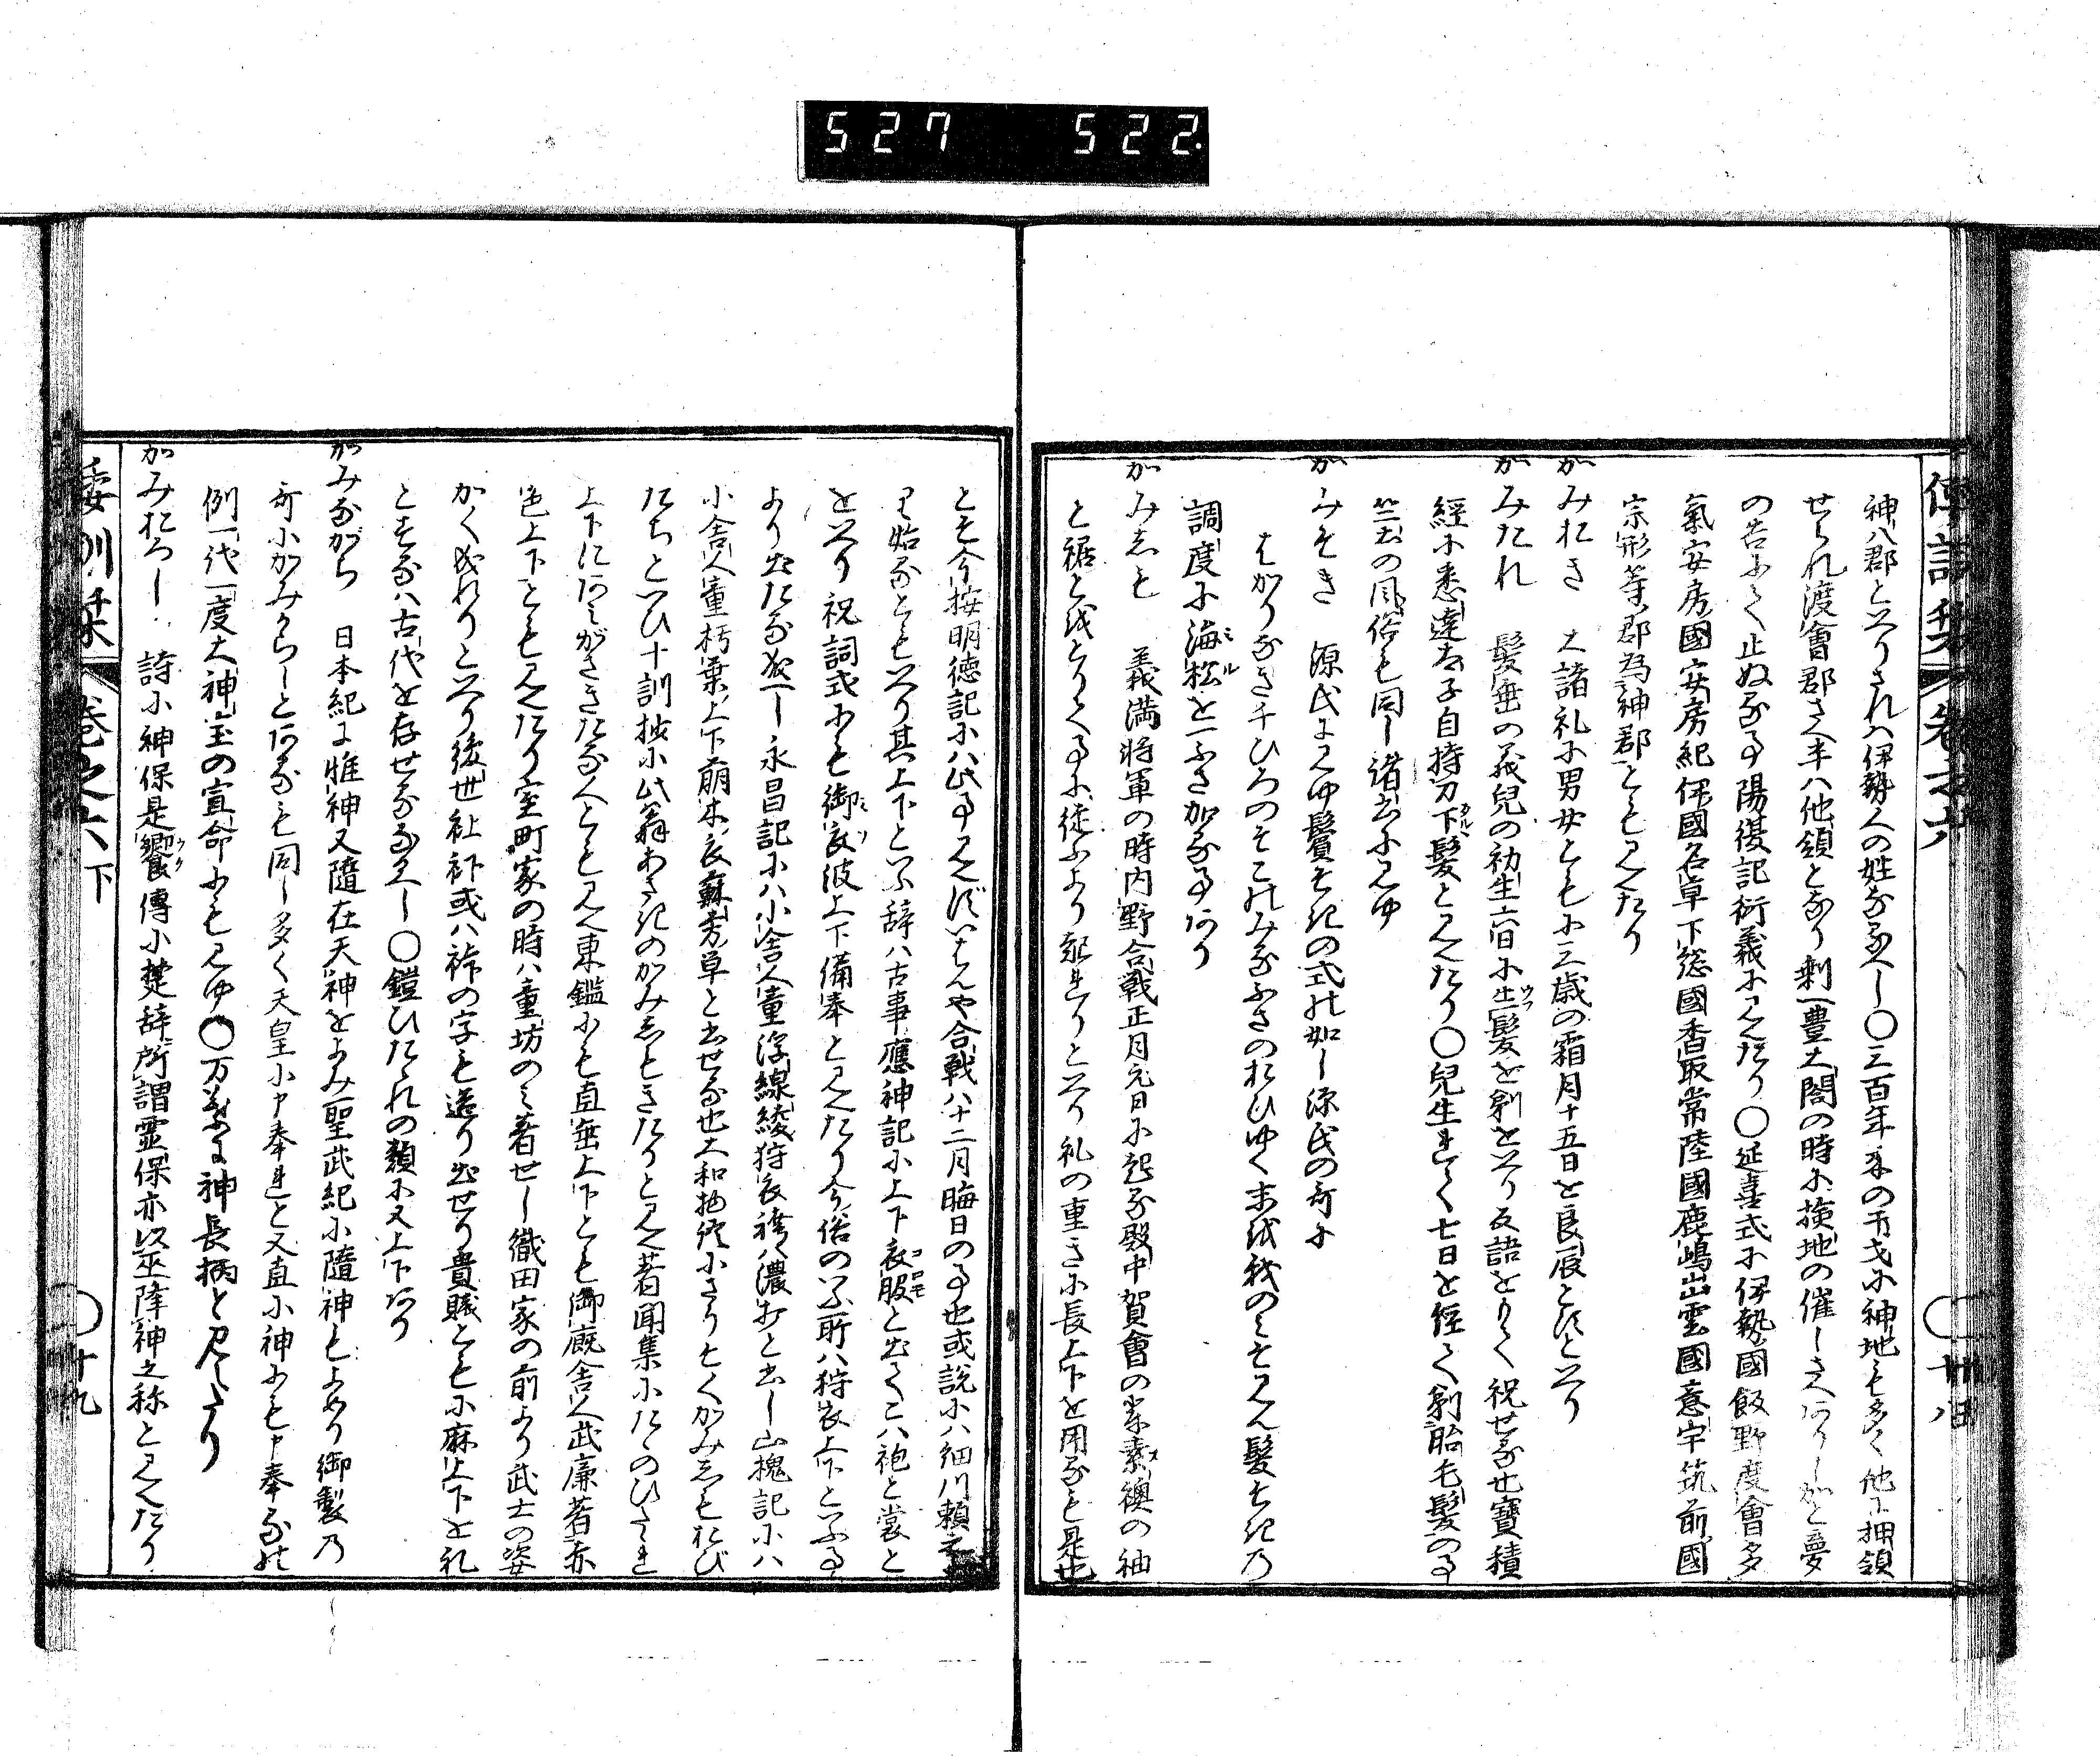 527 522
神八郡といへりされハ伊勢人の姓なるへし〇三百年来の乃神地も多く他に押領
せられ渡會郡さへ半ハ他領となり剰豊大閤の時に検地の催しさへありしかと夢
の告にて止ぬる事陽復記衍義に見えたり〇延喜式に伊勢國飯野度會多
氣安房國安房紀伊國名草下総國香取常陸國鹿嶋出雲國意宇筑前國
宗形等郡為神郡とも見えたり
がみおき 大諸礼に男女ともに三歳の霜月十五日を良辰とすといへり
がみたれ 髪垂の義兒の初生六日に生髪を剃をいへり反語をもて祝せる也寶積
經に悉達太子自持刀下髪と見えたり〇兒生れて七日を經て剃胎毛髪の事
竺土の風俗も同し諸書に見ゆ
がみそき 源氏に見ゆ鬢そきの式の如し源氏の哥に
はかりなき千ひろのそこのみるふさのおひゆく末は我のみそ見ん髪そきの
調度に海松を一ふさ加る事あり
がみしも 義満将軍の時内野合戦正月元日に起る殿中賀會の素襖の袖
と裾とをとりて事に従ふより起れりといへり礼の重きに長上下を用るも是也
とそ今按明徳記にハ此事見えすいはんや合戦ハ十二月晦日の事也或説にハ細川頼之
に始るともいへり其上下といふ辞ハ古事應神記に上下衣服と出てこハ袍と裳と
をいへり祝詞式にも御衣波上下備奉と見えたり今俗のいふ所ハ狩衣上下といふ事
より出たるなへし永昌記にハ小舎人童浮線綾狩衣袴濃打と出し山槐記にハ
小舎人童朽葉上下萌木衣蘇芳単と出せる也大和物語にさりけくかみしもおひ
たちといひ十訓抄に此翁あさきのかみしもきたりと見え著聞集にたゝのひたゝれ
上下にあみがさきたる人とも見え東鑑にも直垂上下とも御厩舎人武廉著赤
色上下とも見えたり室町家の時ハ童坊のミ著せし織田家の前より武士の姿
かく成れりといへり後世社𧘕或ハ裃の字も造り出せり貴賎ともに麻上下を礼
とするハ古代を存せるなるへし〇鎧ひたゝれの類に又上下あり
がみながら 日本紀に惟神又隨在天神をよみ聖武紀に隨神ともよめり御製の
哥にかみからしとあるも同し多く天皇に申奉れと又直に神にも申奉るの
例一代一度大神宝の宣命にも見ゆ〇万葉に神長柄と見えたり
がみおろし 詩に神保是饗傳に楚辞所謂霊保亦以巫降神之称と見えたり
倭訓栞 巻之六下 〇十九